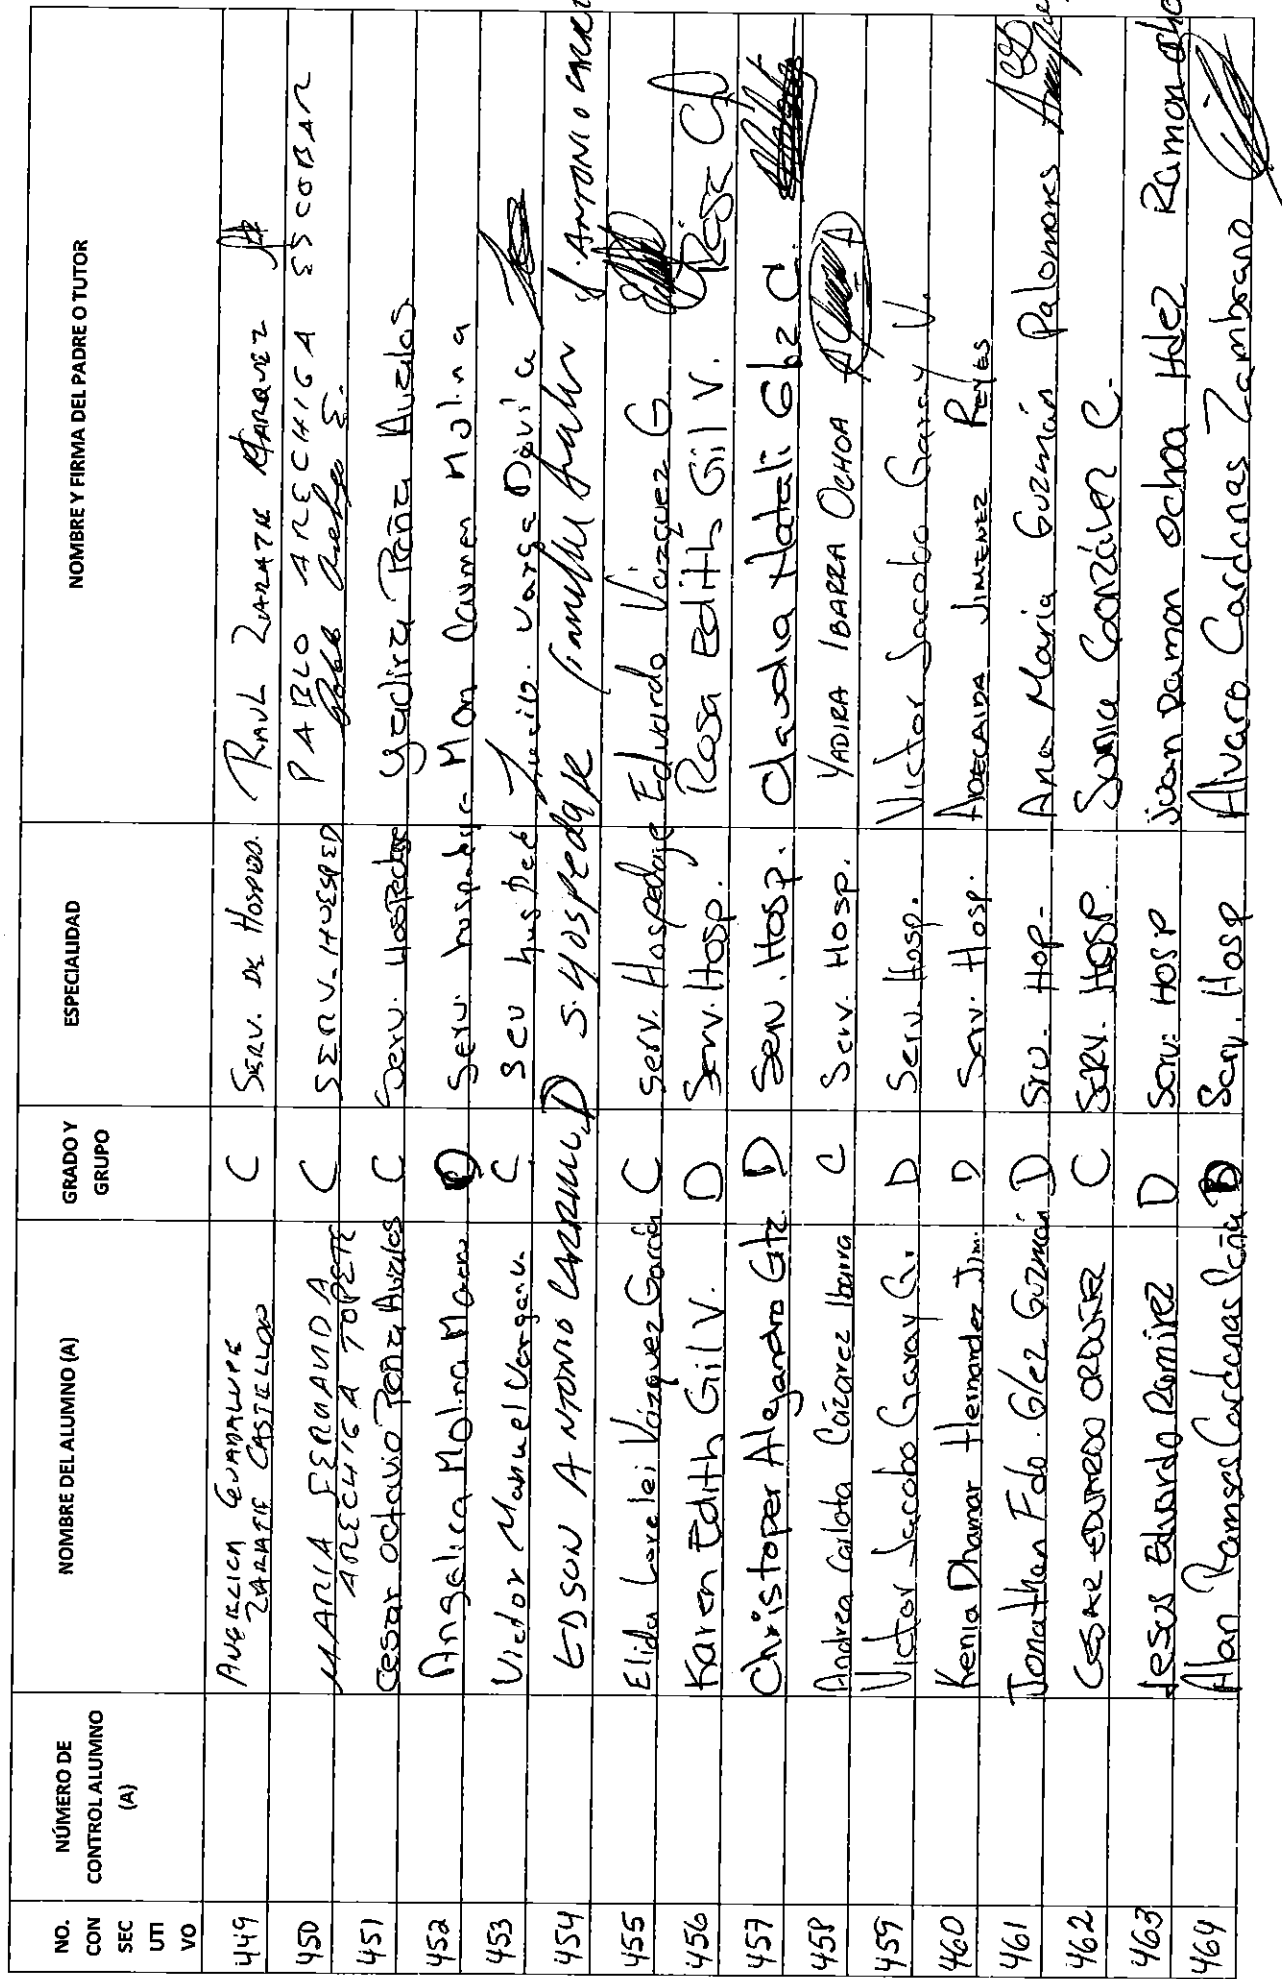 NO. CON SEC UTI VO NÚMERO DE CONTROL ALUMNO (A) NOMBRE DEL ALUMNO (A) GRADO Y GRUPO ESPECIALIDAD NOMBRE Y FIRMA DEL PADRE O TUTOR
449 ANGELICA GUADALUPE ZARATE CASTELLON C SERV. DE HOSPED. RAUL ZARATE MARQUEZ
450 MARIA FERNANDA ARECHIGA TOPETE C SERV. HUESPED PABLO ARECHIGA ESCOBAR
451 Cesar Octavio Peña Avalos C Serv. Hospedaje Yadira Peña Avalos
452 Angelica Molina D Serv. hospedaje Carmen Molina
453 Victor Manuel Vergara C
454 EDSON ANTONIO CARRILLO D S. HOSPEDAJE J. ANTONIO
455 Elida Lorelei Vázquez García C Serv. Hospedaje Eduardo Vázquez G
456 Karen Edith Gil V. D Serv. Hosp. Rosa Edith Gil V.
457 Christoper Alejandro Gtz. D Serv. Hosp. Claudia Natali
458 Andrea Carlota Cázarez Ibarra C Serv. Hosp. YADIRA IBARRA OCHOA
459 Victor Jacobo Garay G. D Serv. Hosp. Victor Jacobo Garay V.
460 Kenia Dhamar Hernandez Jim. D Serv. Hosp. ADECAIDA JIMENEZ REYES
461 Jonathan Fdo. Glez Guzmán D Srv. Hop. Ana Maria Guzmán Palomares
462 CESAR EDUARDO ORDUÑEZ C SERV. HOSP. Sonia González C.
463 Jesus Eduardo Ramirez D Serv. HOSP Juan Ramon Ochoa Hdez Ramon Ocho
464 Alan Ramses Cardenas Peña D Serv. Hosp Alvaro Cardenas Zambrano